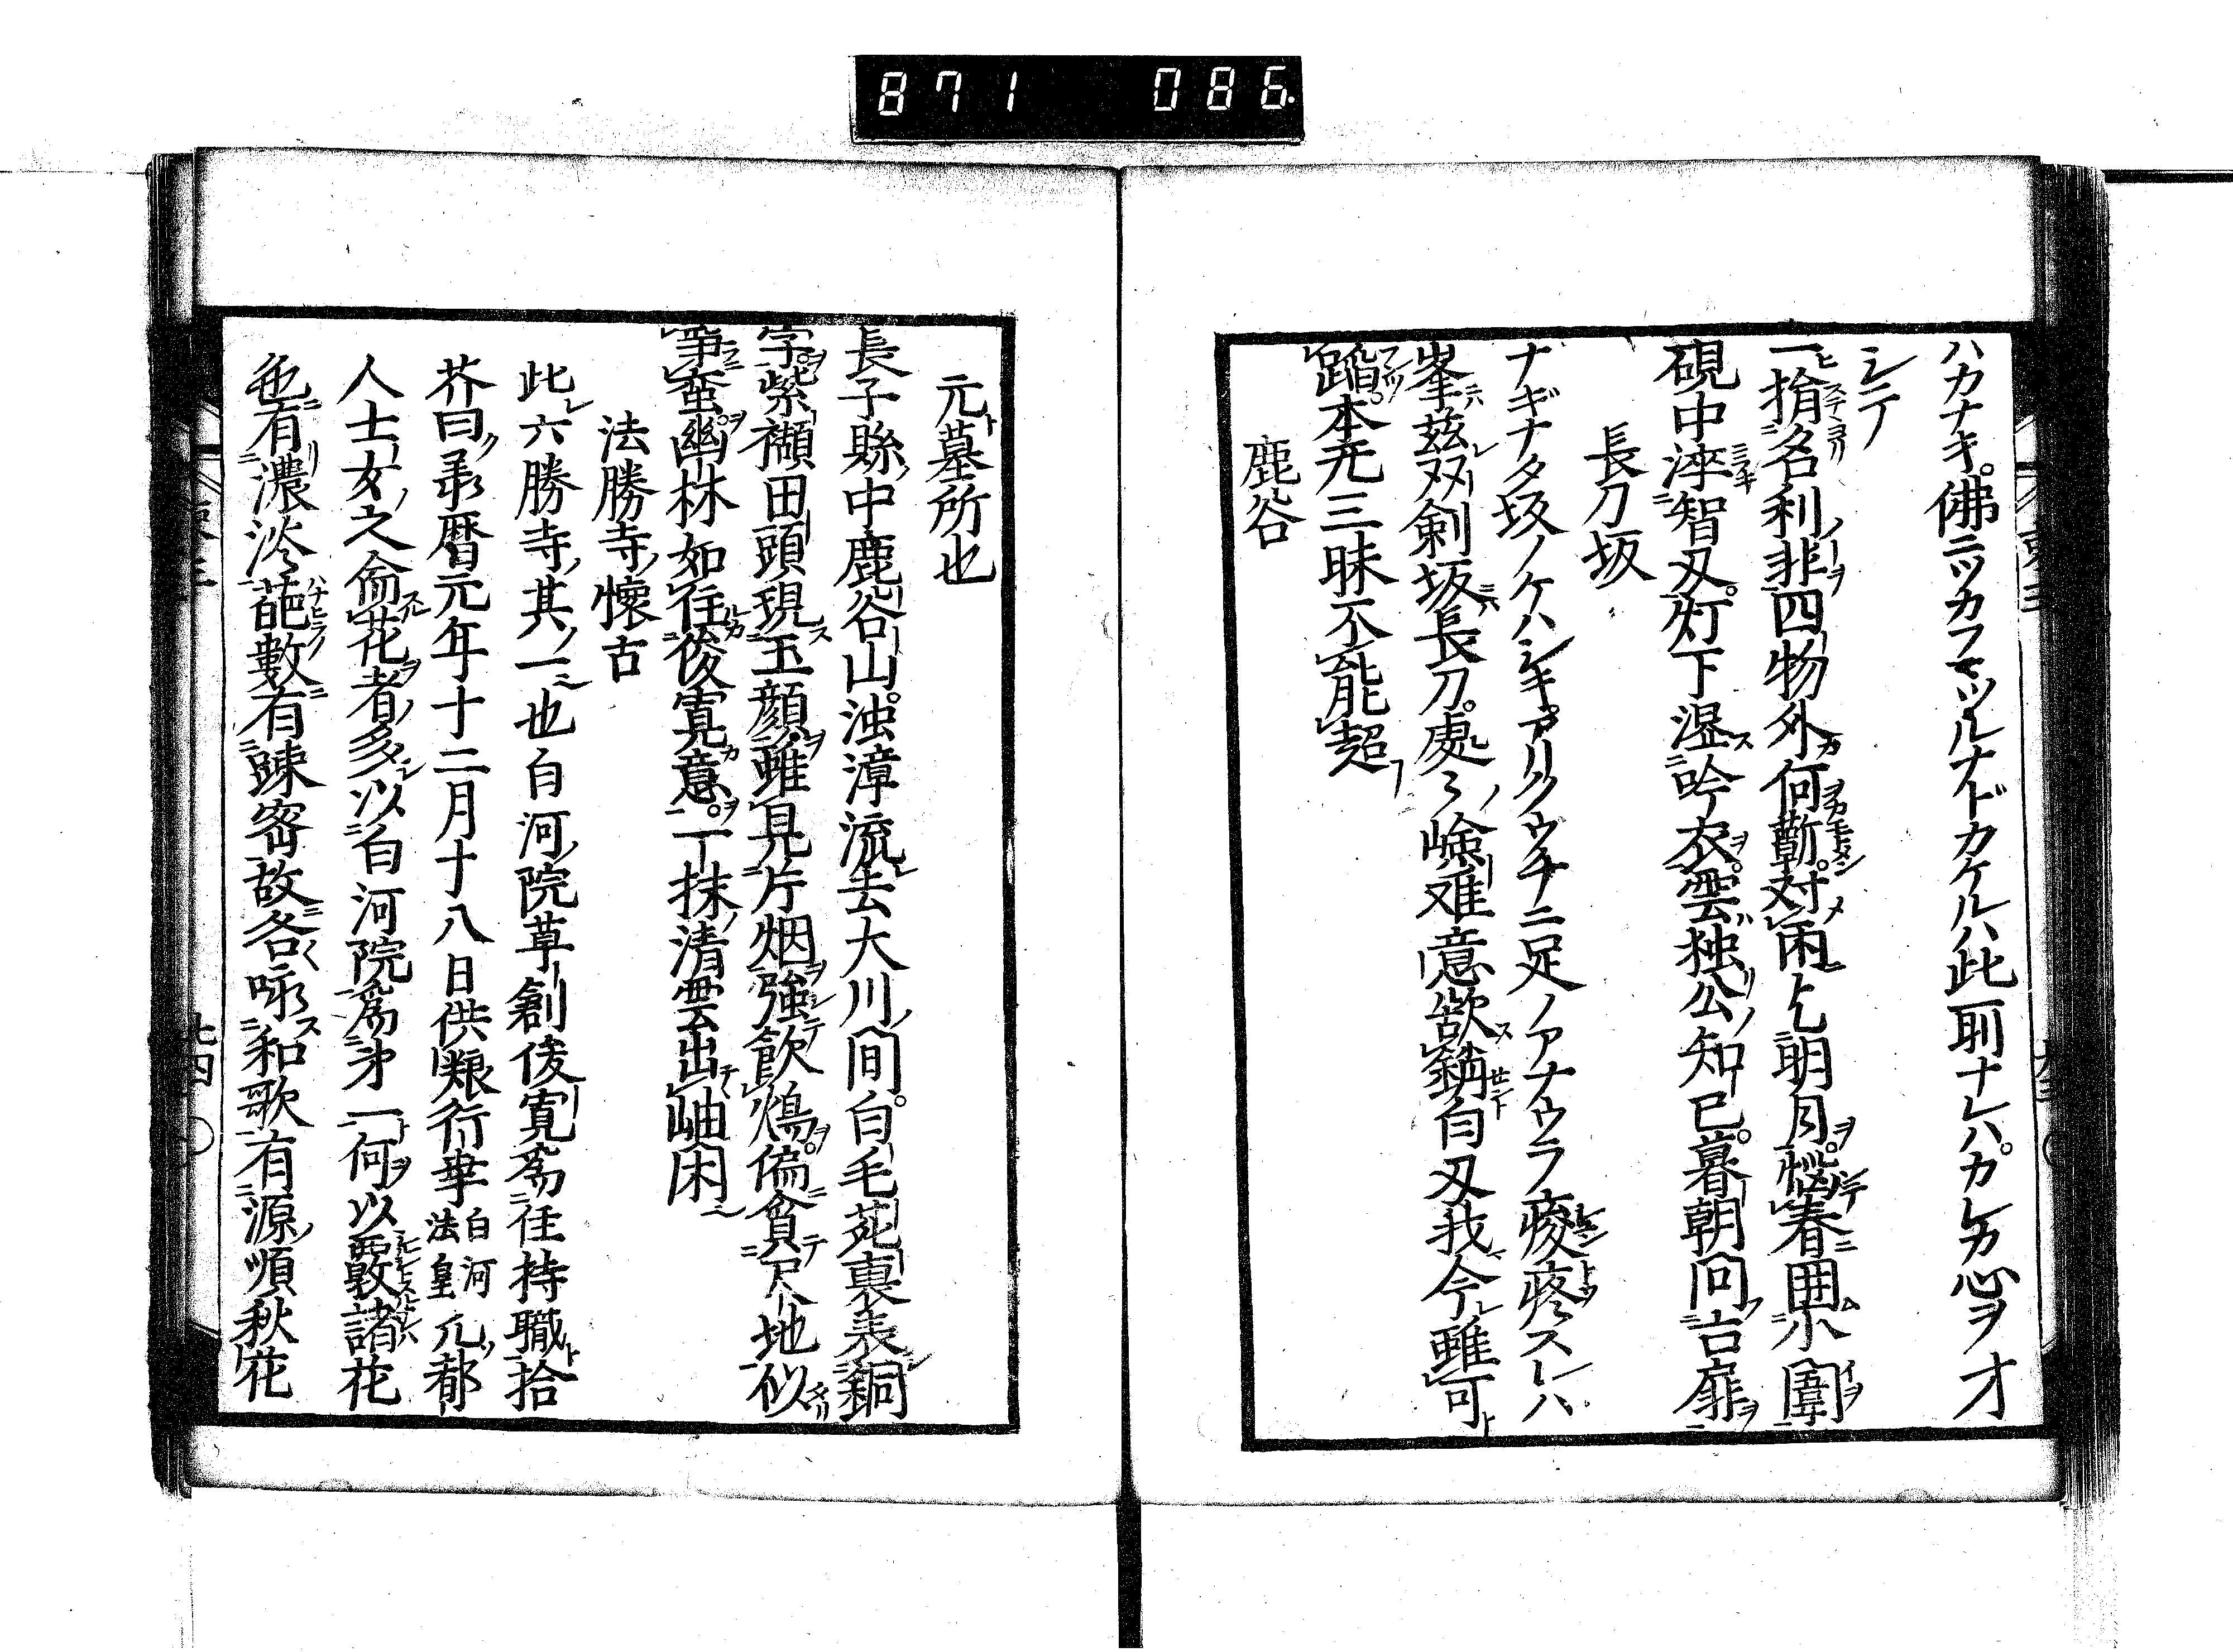 871 086
ハカナキ佛ニツカフマツルナドカケルハ此聊ナレハカレカ心ヲオ
シテ
一捐名利非四物外何蘄対雨乞明月慫春囲小圍
硯中淬智刄灯下湿吟衣雲独公知已暮朝問古扉
長刀坂
ナギナタ坂ノケハシキアリクウチニ足ノアナウラ痠疼スレハ
峯玆双剣坂長刀處々嶮难意欲鋳白刄我今雖可
蹈本无三昧不能超
鹿谷
元墓所也
長子縣中鹿谷山浊漳流去大川間白毛苑裏表銅
字紫襭田頭現玉顔雖見片烟強飲鴆偏貧尺地似
爭蛮幽林如住俊寛意一抹清雲出岫閑
法勝寺懐古
此六勝寺其一也白河院草創俊寛爲住持職拾
芥曰承暦元年十二月十八日供粮行幸白河法皇凡都
人士女之侖花者多以白河院爲㐧一何以數諸花
色有濃淡葩數有踈密故各咏和歌有源順秋花